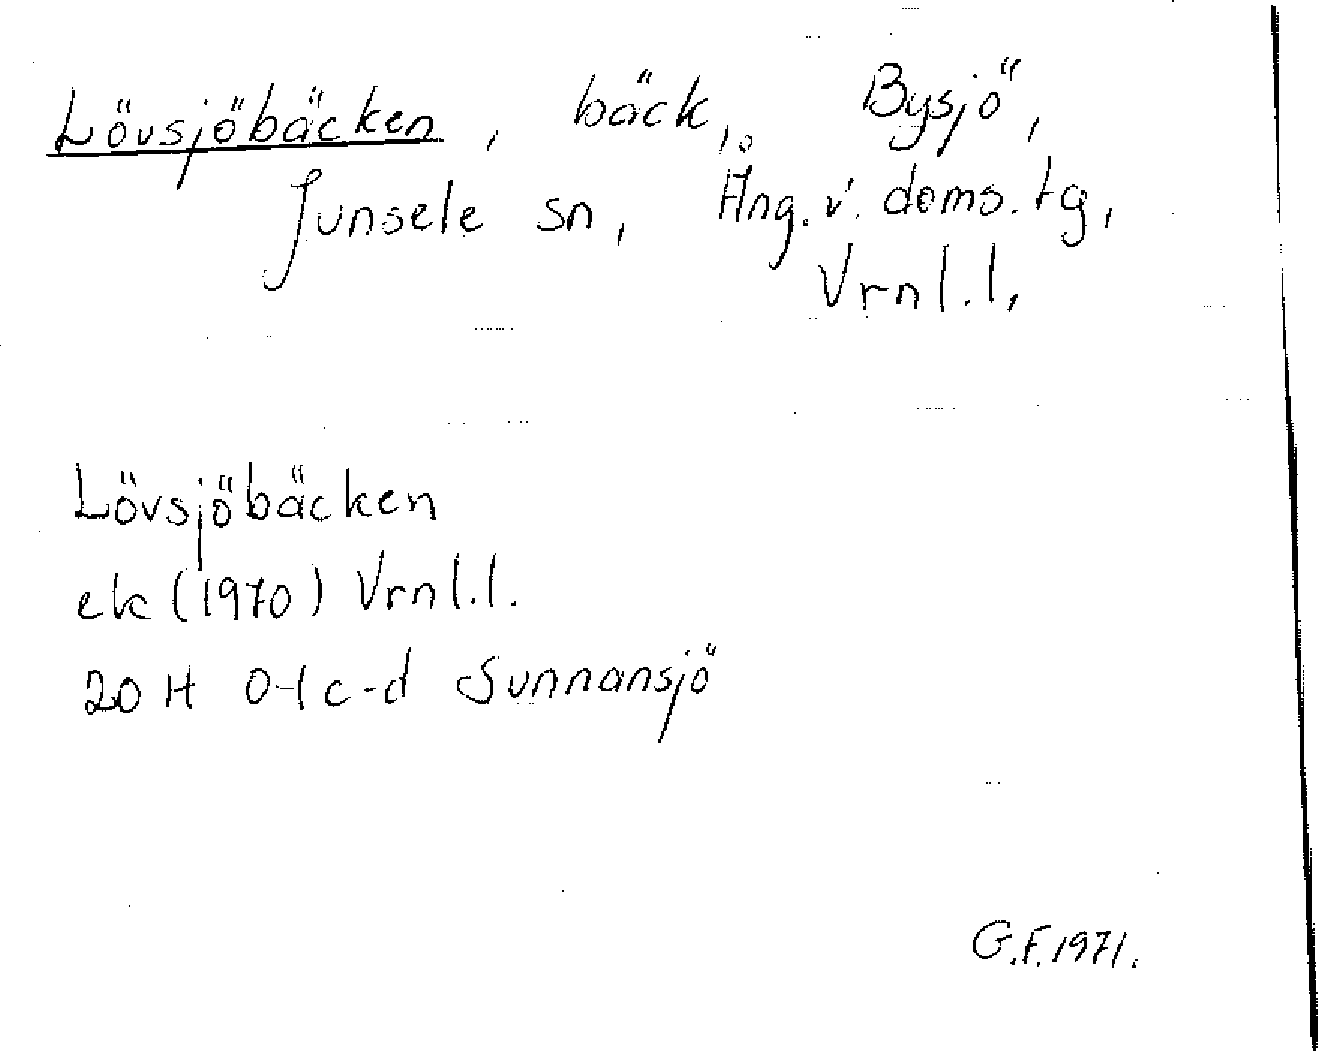 Lövsjöbäcken, bäck, Bysjö,
Junsele sn, Ång. v. doms. tg,
Vrnl. l,
Lövsjöbäcken
ek (1970) Vrnl. l.
20 H 0-1 c-d Sunnansjö
G.F. 1971.